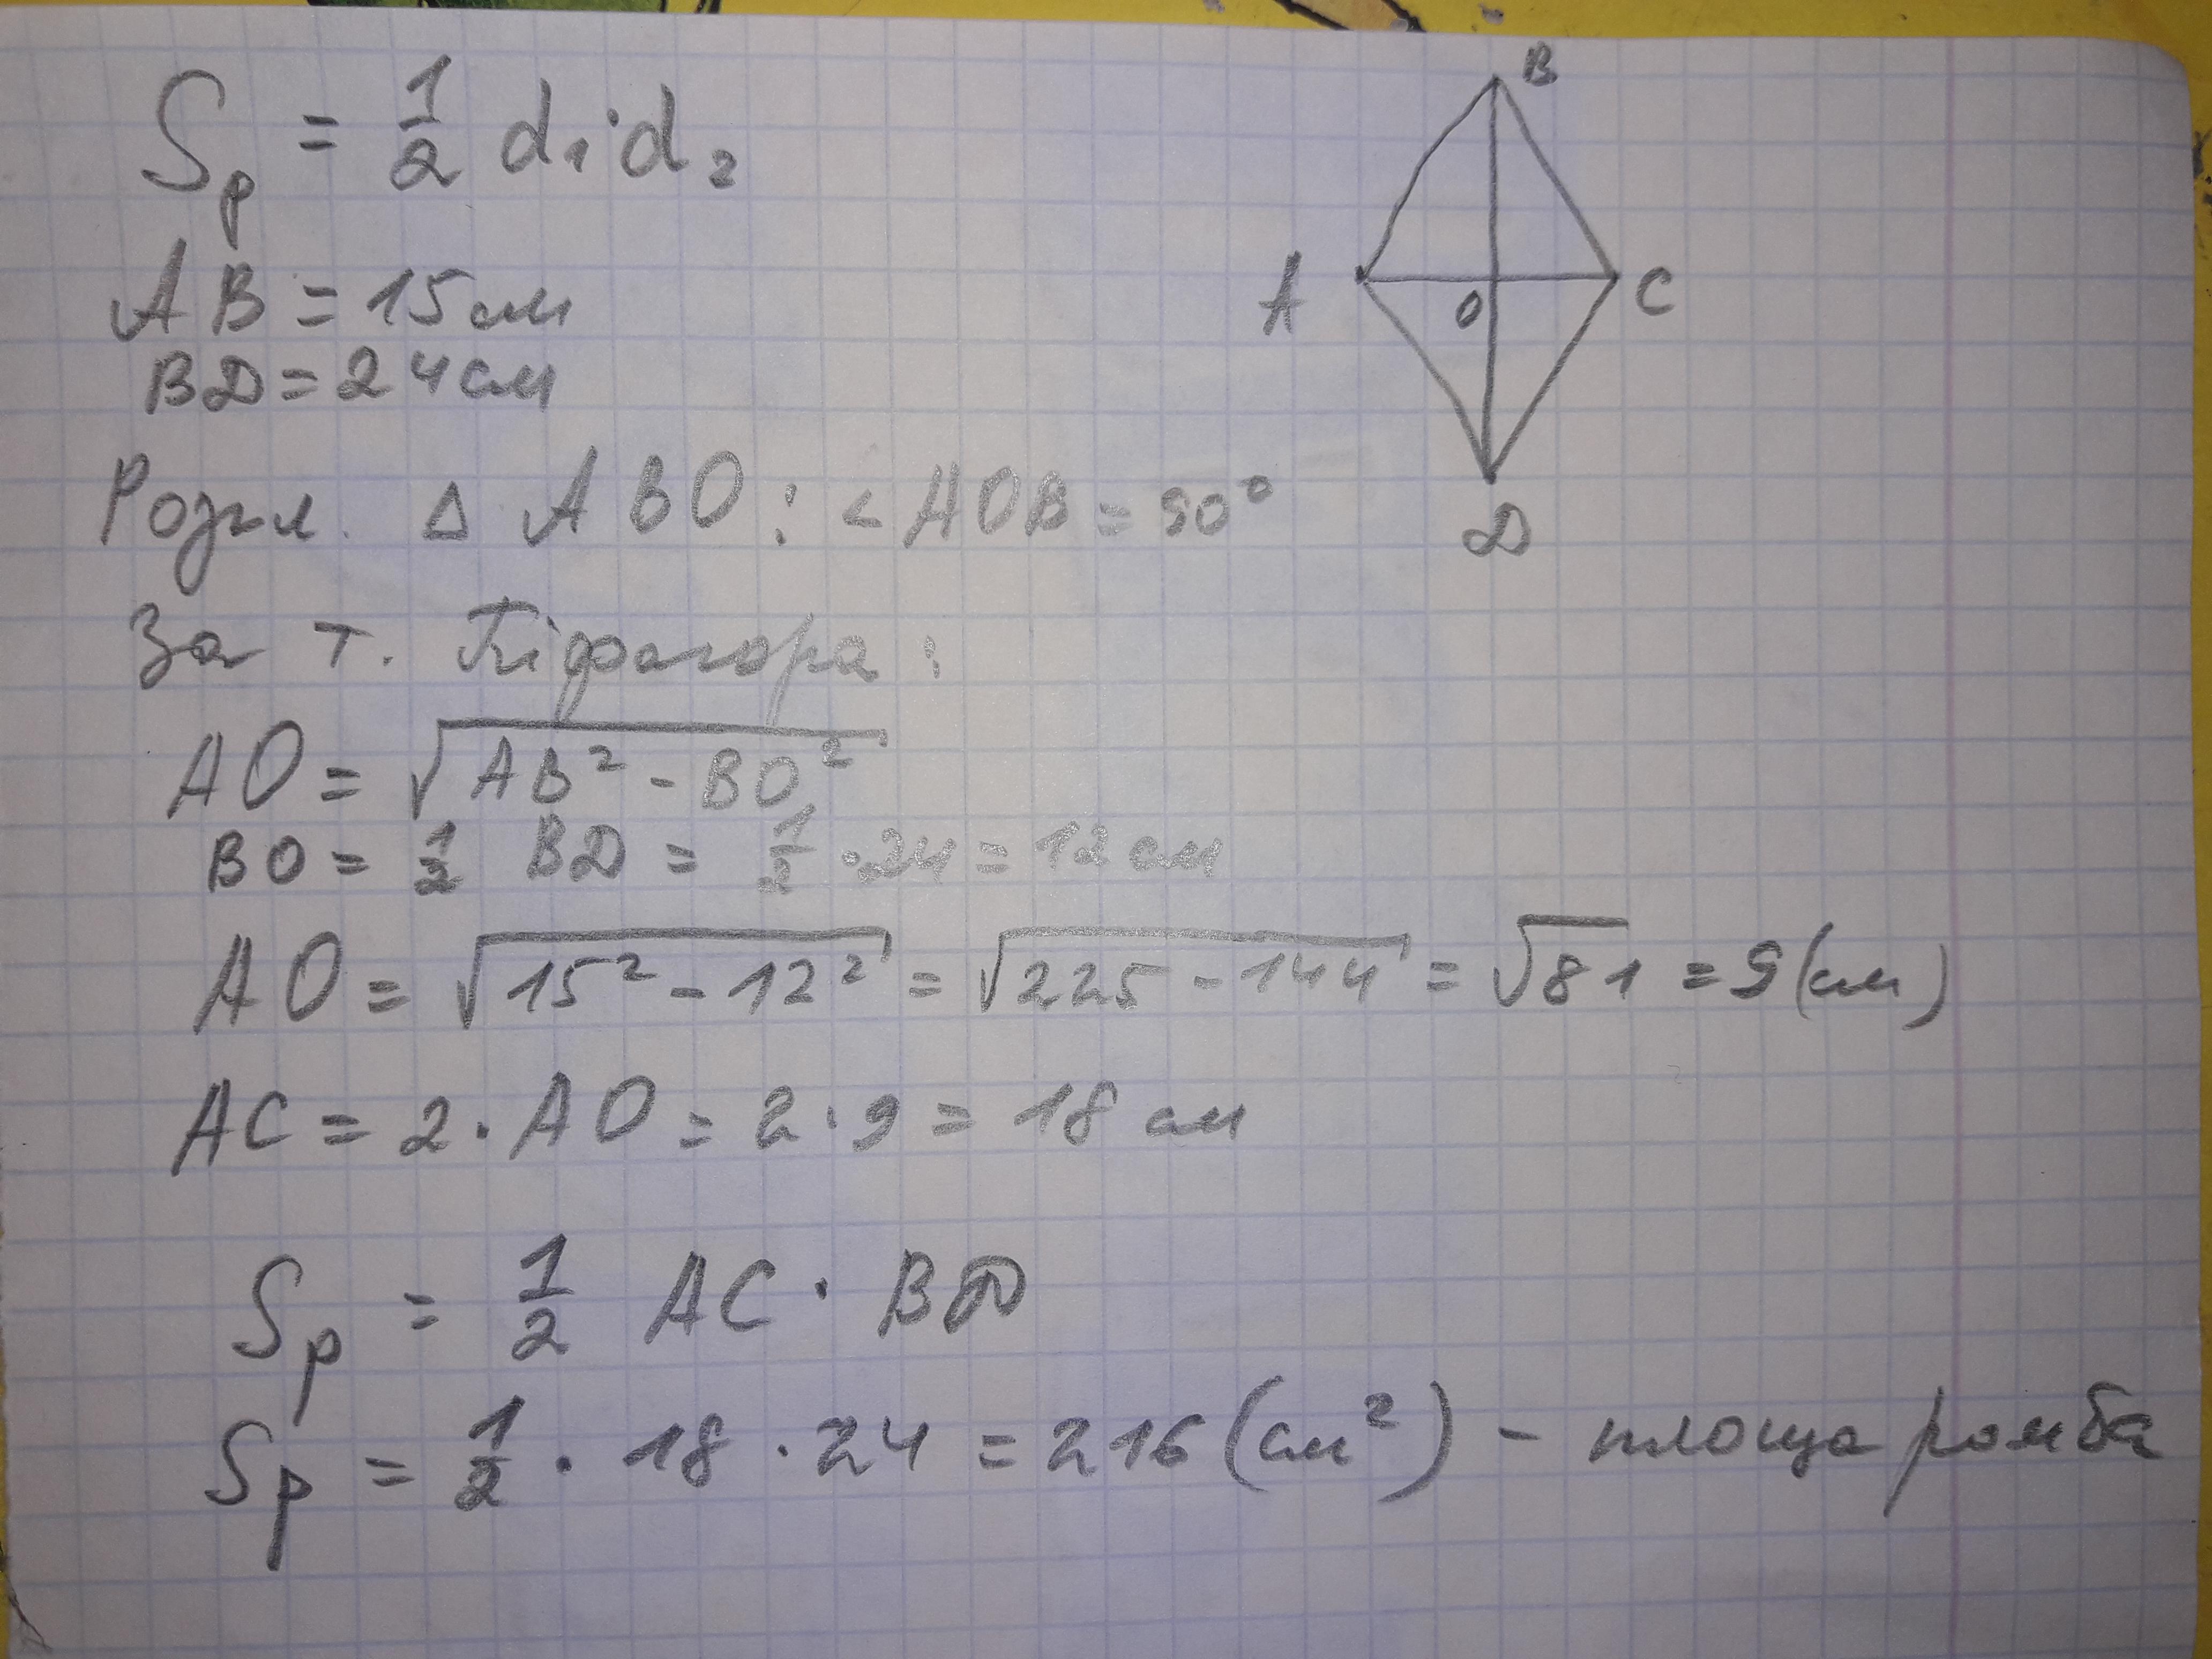 Sр = 1/2 d₁·d₂
AB = 15 см
BD = 24 см
Розгл. Δ ABO: < AOB = 90°
За т. Піфагора:
AO = √(AB² - BO²)
BO = 1/2 BD = 1/2 · 24 = 12 см
AO = √(15² - 12²) = √(225 - 144) = √81 = 9 (см)
AC = 2 · AO = 2 · 9 = 18 см
Sр = 1/2 AC · BD
Sр = 1/2 · 18 · 24 = 216 (см²) - площа ромба
B
A
O
C
D